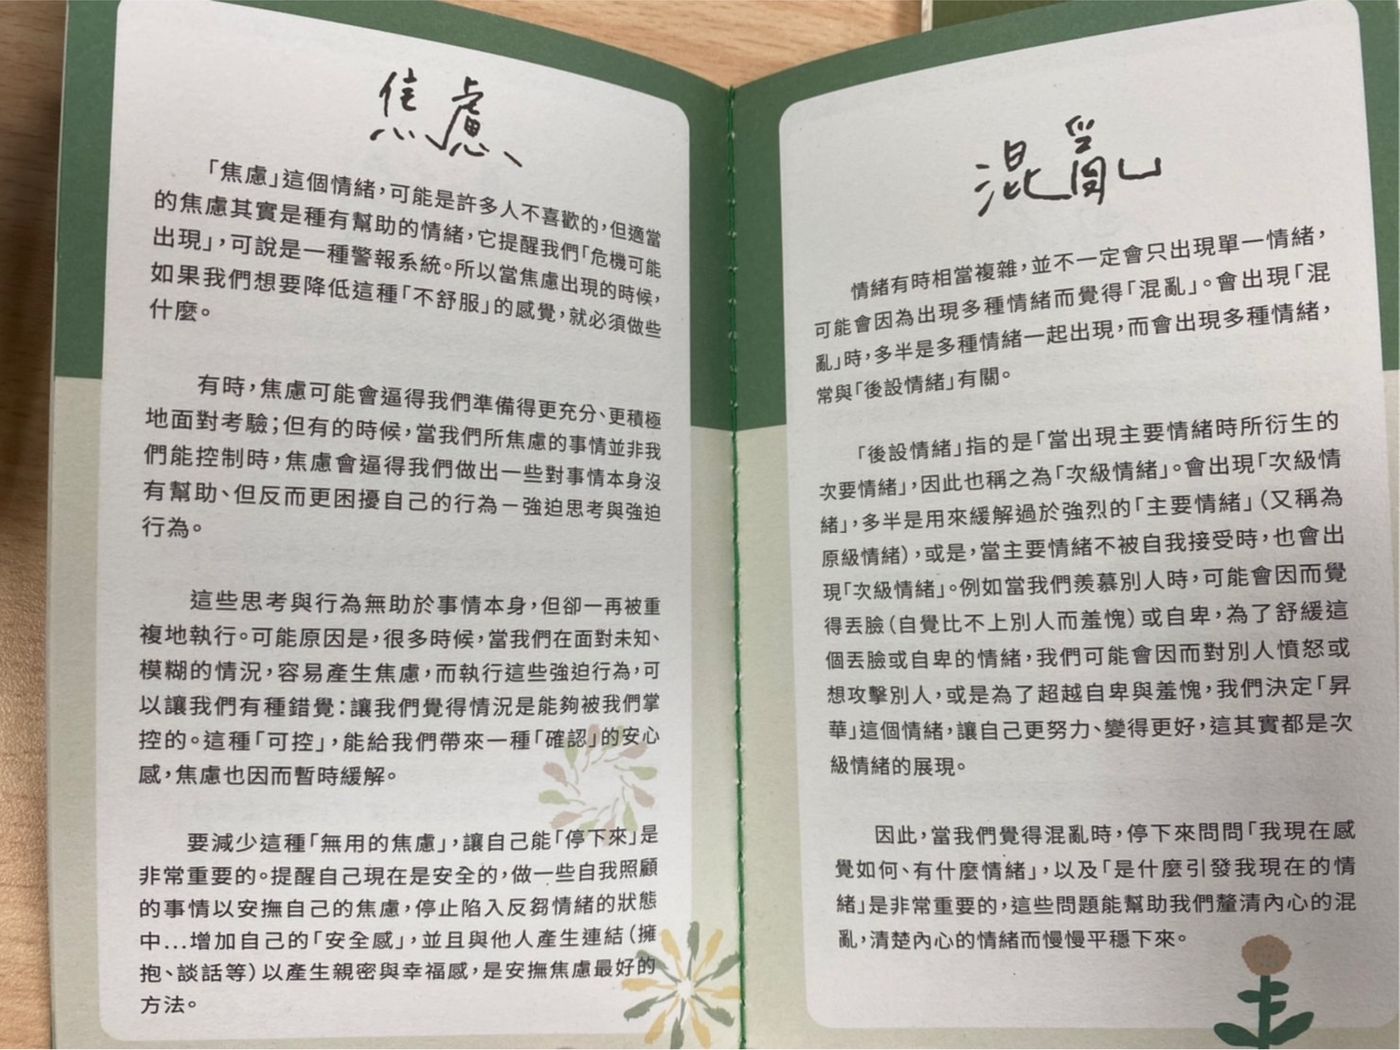 焦慮
「焦慮」這個情緒，可能是許多人不喜歡的，但適當
的焦慮其實是種有幫助的情緒，它提醒我們「危機可能
出現」，可說是一種警報系統。所以當焦慮出現的時候，
如果我們想要降低這種「不舒服」的感覺，就必須做些
什麼。
有時，焦慮可能會逼得我們準備得更充分、更積極
地面對考驗；但有的時候，當我們所焦慮的事情並非我
們能控制時，焦慮會逼得我們做出一些對事情本身沒
有幫助、但反而更困擾自己的行為－強迫思考與強迫
行為。
這些思考與行為無助於事情本身，但卻一再被重
複地執行。可能原因是，很多時候，當我們在面對未知、
模糊的情況，容易產生焦慮，而執行這些強迫行為，可
以讓我們有種錯覺：讓我們覺得情況是能夠被我們掌
控的。這種「可控」，能給我們帶來一種「確認」的安心
感，焦慮也因而暫時緩解。
要減少這種「無用的焦慮」，讓自己能「停下來」是
非常重要的。提醒自己現在是安全的，做一些自我照顧
的事情以安撫自己的焦慮，停止陷入反芻情緒的狀態
中…增加自己的「安全感」，並且與他人產生連結（擁
抱、談話等）以產生親密與幸福感，是安撫焦慮最好的
方法。
混亂
情緒有時相當複雜，並不一定會只出現單一情緒，
可能會因為出現多種情緒而覺得「混亂」。會出現「混
亂」時，多半是多種情緒一起出現，而會出現多種情緒，
常與「後設情緒」有關。
「後設情緒」指的是「當出現主要情緒時所衍生的
次要情緒」，因此也稱之為「次級情緒」。會出現「次級情
緒」，多半是用來緩解過於強烈的「主要情緒」（又稱為
原級情緒），或是，當主要情緒不被自我接受時，也會出
現「次級情緒」。例如當我們羨慕別人時，可能會因而覺
得丟臉（自覺比不上別人而羞愧）或自卑，為了舒緩這
個丟臉或自卑的情緒，我們可能會因而對別人憤怒或
想攻擊別人，或是為了超越自卑與羞愧，我們決定「昇
華」這個情緒，讓自己更努力、變得更好，這其實都是次
級情緒的展現。
因此，當我們覺得混亂時，停下來問問「我現在感
覺如何、有什麼情緒」，以及「是什麼引發我現在的情
緒」是非常重要的，這些問題能幫助我們釐清內心的混
亂，清楚內心的情緒而慢慢平穩下來。